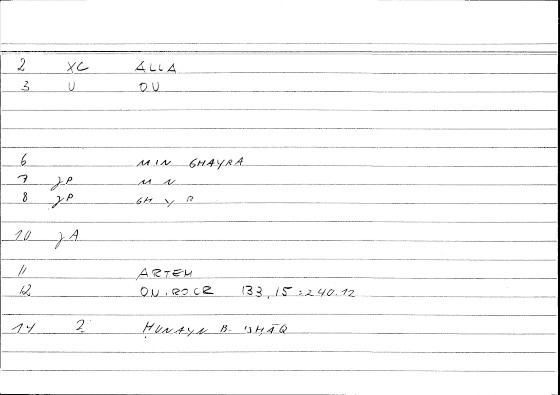 2 XC ALLA
3 U OU
6 MIN GHAYRA
7 JP M N
8 JP GH Y R
10 JA
11 ARTEM
12 ON.IROCR 133,15 : 240.12
14 2 ḤUNAYN B. ISḤĀQ